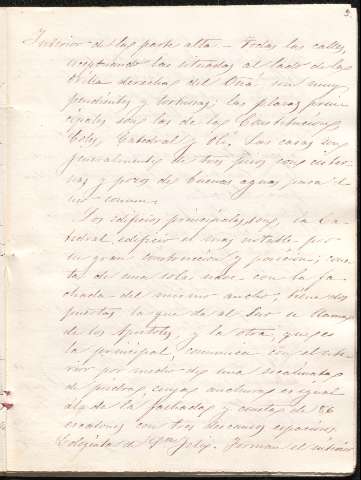 3.
Interior de la parte alta.- Todas las calles,
exceptuando las situadas al lado de la
orilla derecha del Oñá, son muy
pendientes y tortuosas; las plazas prin-
cipales son las de la Constitucion,
Coles, Catedral y Oli. Las casas son
generalmente de tres pisos con cister-
nas y pozos de buenas aguas para el
uso comun.
Los edificios principales son, la Ca-
tedral, edificio el mas notable por
su gran construccion y posicion; cons-
ta de una sola nave con la fa-
chada del mismo ancho; tiene dos
puertas, la que da al Sur se llama
de los Apostoles, y la otra, que es
la principal, comunica con el exte-
rior por medio de una escalinata
de piedra cuya anchura es igual
á la de la fachada y consta de 86
escalones con tres descansos espaciosos.
Colegiata de San Felix. Forman el interior